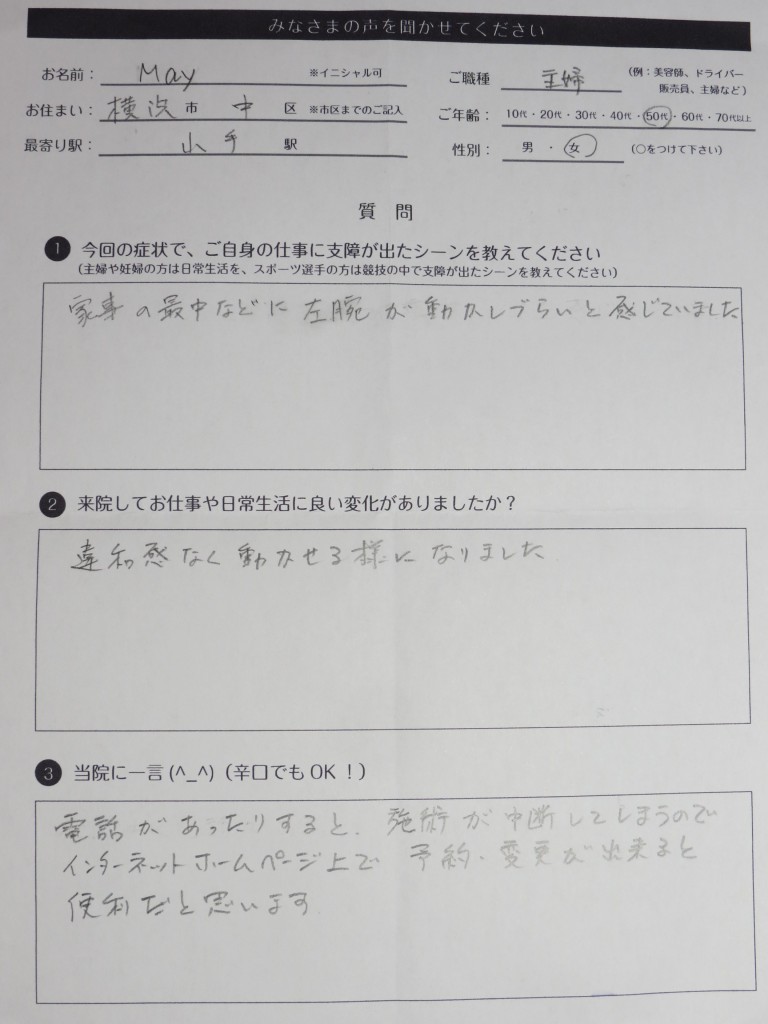 みなさまの声を聞かせてください
お名前： May ※イニシャル可
ご職種 主婦 (例：美容師、ドライバー
販売員、主婦など)
お住まい： 横浜 市 中 区 ※市区までのご記入
ご年齢： 10代・20代・30代・40代・50代・60代・70代以上
最寄り駅： 山手 駅
性別： 男 ・ 女 (○をつけて下さい)
質 問
1 今回の症状で、ご自身の仕事に支障が出たシーンを教えてください
(主婦や妊婦の方は日常生活を、スポーツ選手の方は競技の中で支障が出たシーンを教えてください)
家事の最中などに左腕が動かしづらいと感じていました
2 来院してお仕事や日常生活に良い変化がありましたか？
違和感なく動かせる様になりました
3 当院に一言(^_^)（辛口でもOK！）
電話があったりすると、施術が中断してしまうので
インターネットホームページ上で 予約・変更が出来ると
便利だと思います